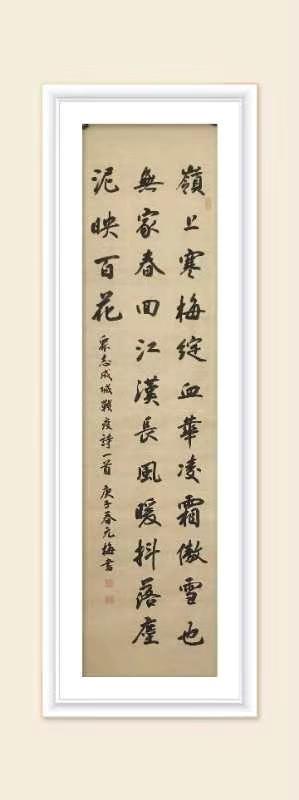 嶺上寒梅綻血華凌霜傲雪也
無家春回江漢長風暖抖落塵
泥映百花
眾志成城戰疫詩一首 庚子春元梅書